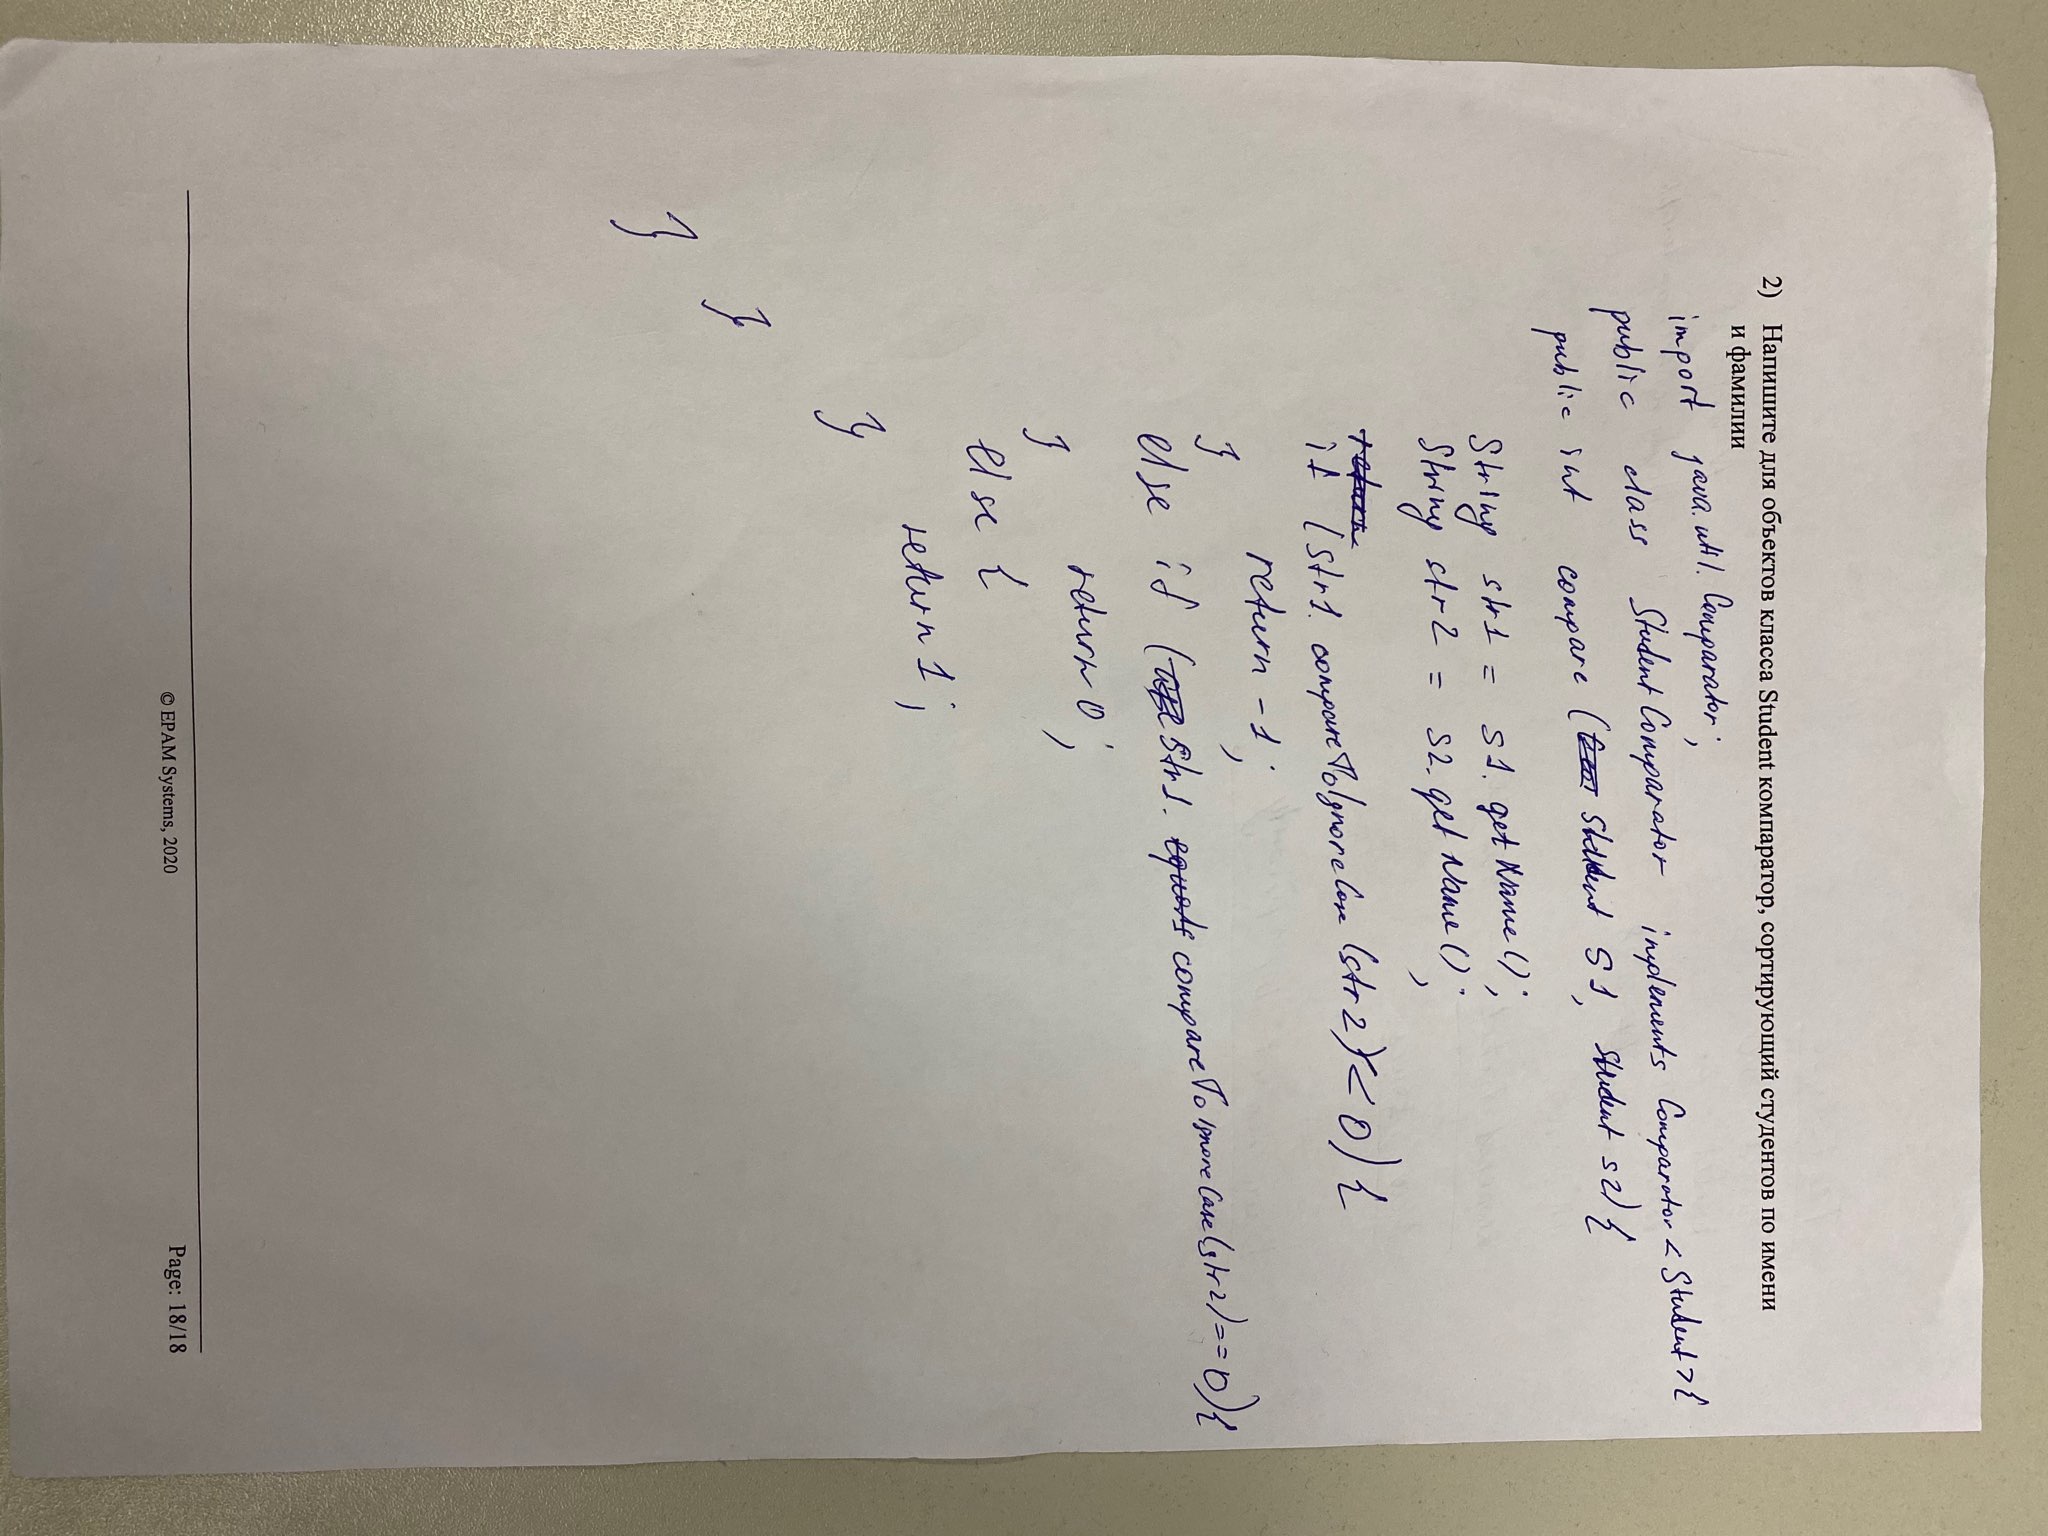 2) Напишите для объектов класса Student компаратор, сортирующий студентов по имени
и фамилии
import java.util.Comparator;
public class StudentComparator implements Comparator<Student>{
public int compare (Student S1, Student s2){
String str1 = s1.getName();
String str2 = s2.getName();
return
if (str1.compareToIgnoreCase(str2)<0){
return -1;
}
else if (str1.equals compareToIgnoreCase(str2)==0){
return 0;
}
else {
return 1;
}
}
}
© EPAM Systems, 2020
Page: 18/18